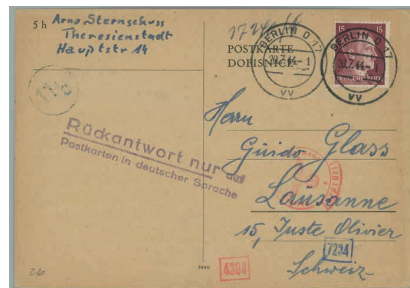 5 h Arno Sternschuss
Theresienstadt
Hauptstr 14
POSTKARTE
DOPISNICE
BERLIN O 17
vv
BERLIN O 17
vv
15
Rückantwort nur auf
Postkarten in deutscher Sprache
Herrn
Guido Glass
Lausanne
15, Juste Olivier
Schweiz
4304
7234
26